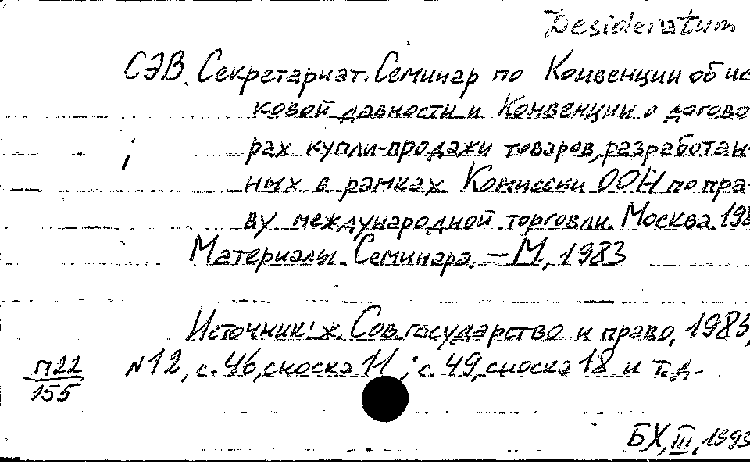 Desideratum
СЭВ. Секретариат. Семинар по Конвенции об ис
ковой давности и Конвенции о догово
рах купли-продажи товаров, разработан-
ных в рамках Комиссии ООН по пра-
ву международной торговли. Москва. 198
Материалы Семинара. — М, 1983
Источник: ж. Сов. государство и право, 1983,
N12, с. 46, сноска 11; с. 49, сноска 18 и т.д.
П22
155
БХ, III, 1993